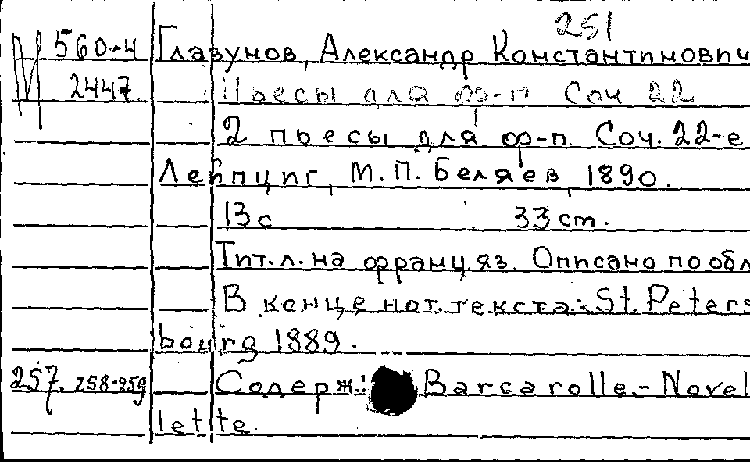 251
М 560-4 Глазунов, Александр Константинович
2447. Пьесы для ф-п Соч 22
2 пьесы для ф-п. Соч. 22-е
Лейпциг, М.П. Беляев, 1890.
13 с 33 cm.
Тит. л. на франц. яз. Описано по обл
В конце нот. текста: St. Peters
bourg 1889.
257. 258-259 Содерж: Barcarolle. - Novel
lette.